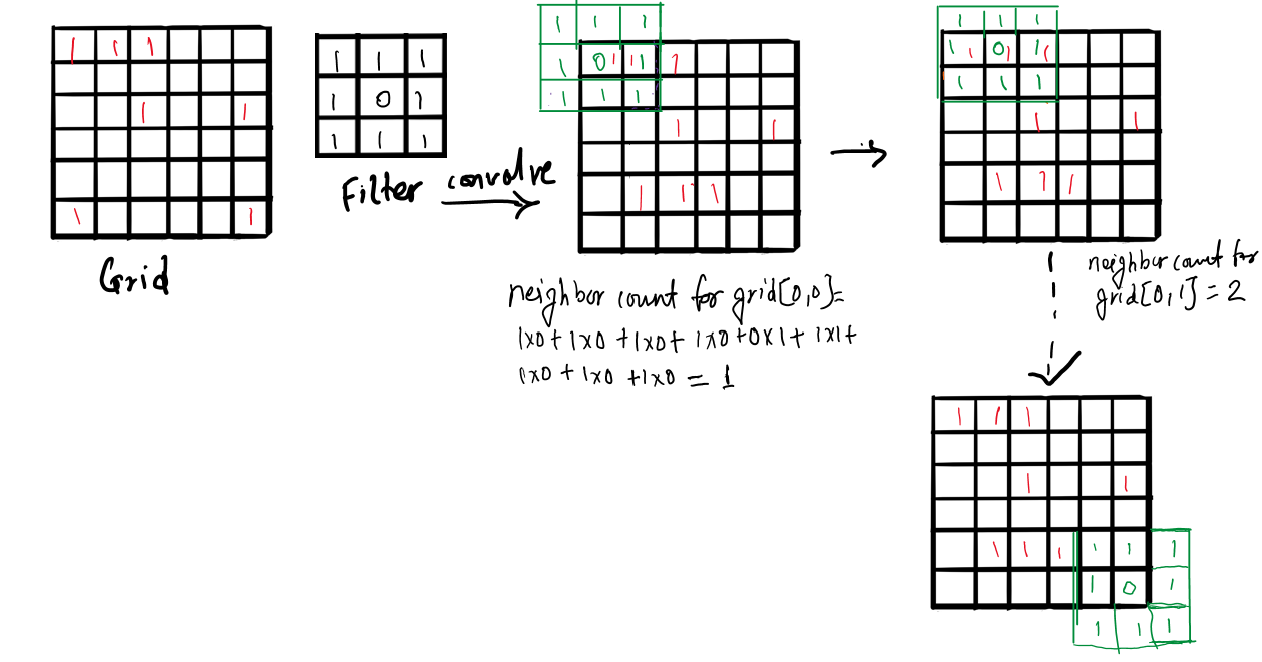 1 1 1
1 1
1 1
Grid
1 1 1
1 0 1
1 1 1
Filter
convolve
1 1 1
1 0 1 1 1 1
1 1 1
1 1
1 1 1
neighbor count for grid[0,0]=
1x0+1x0+1x0+1x0+0x1+1x1+
1x0+1x0+1x0=1
1 1 1
1 1 0 1 1 1
1 1 1
1 1
1 1 1
neighbor count for
grid[0,1]=2
1 1 1
1 1
1 1 1 1 1 1
1 0 1
1 1 1